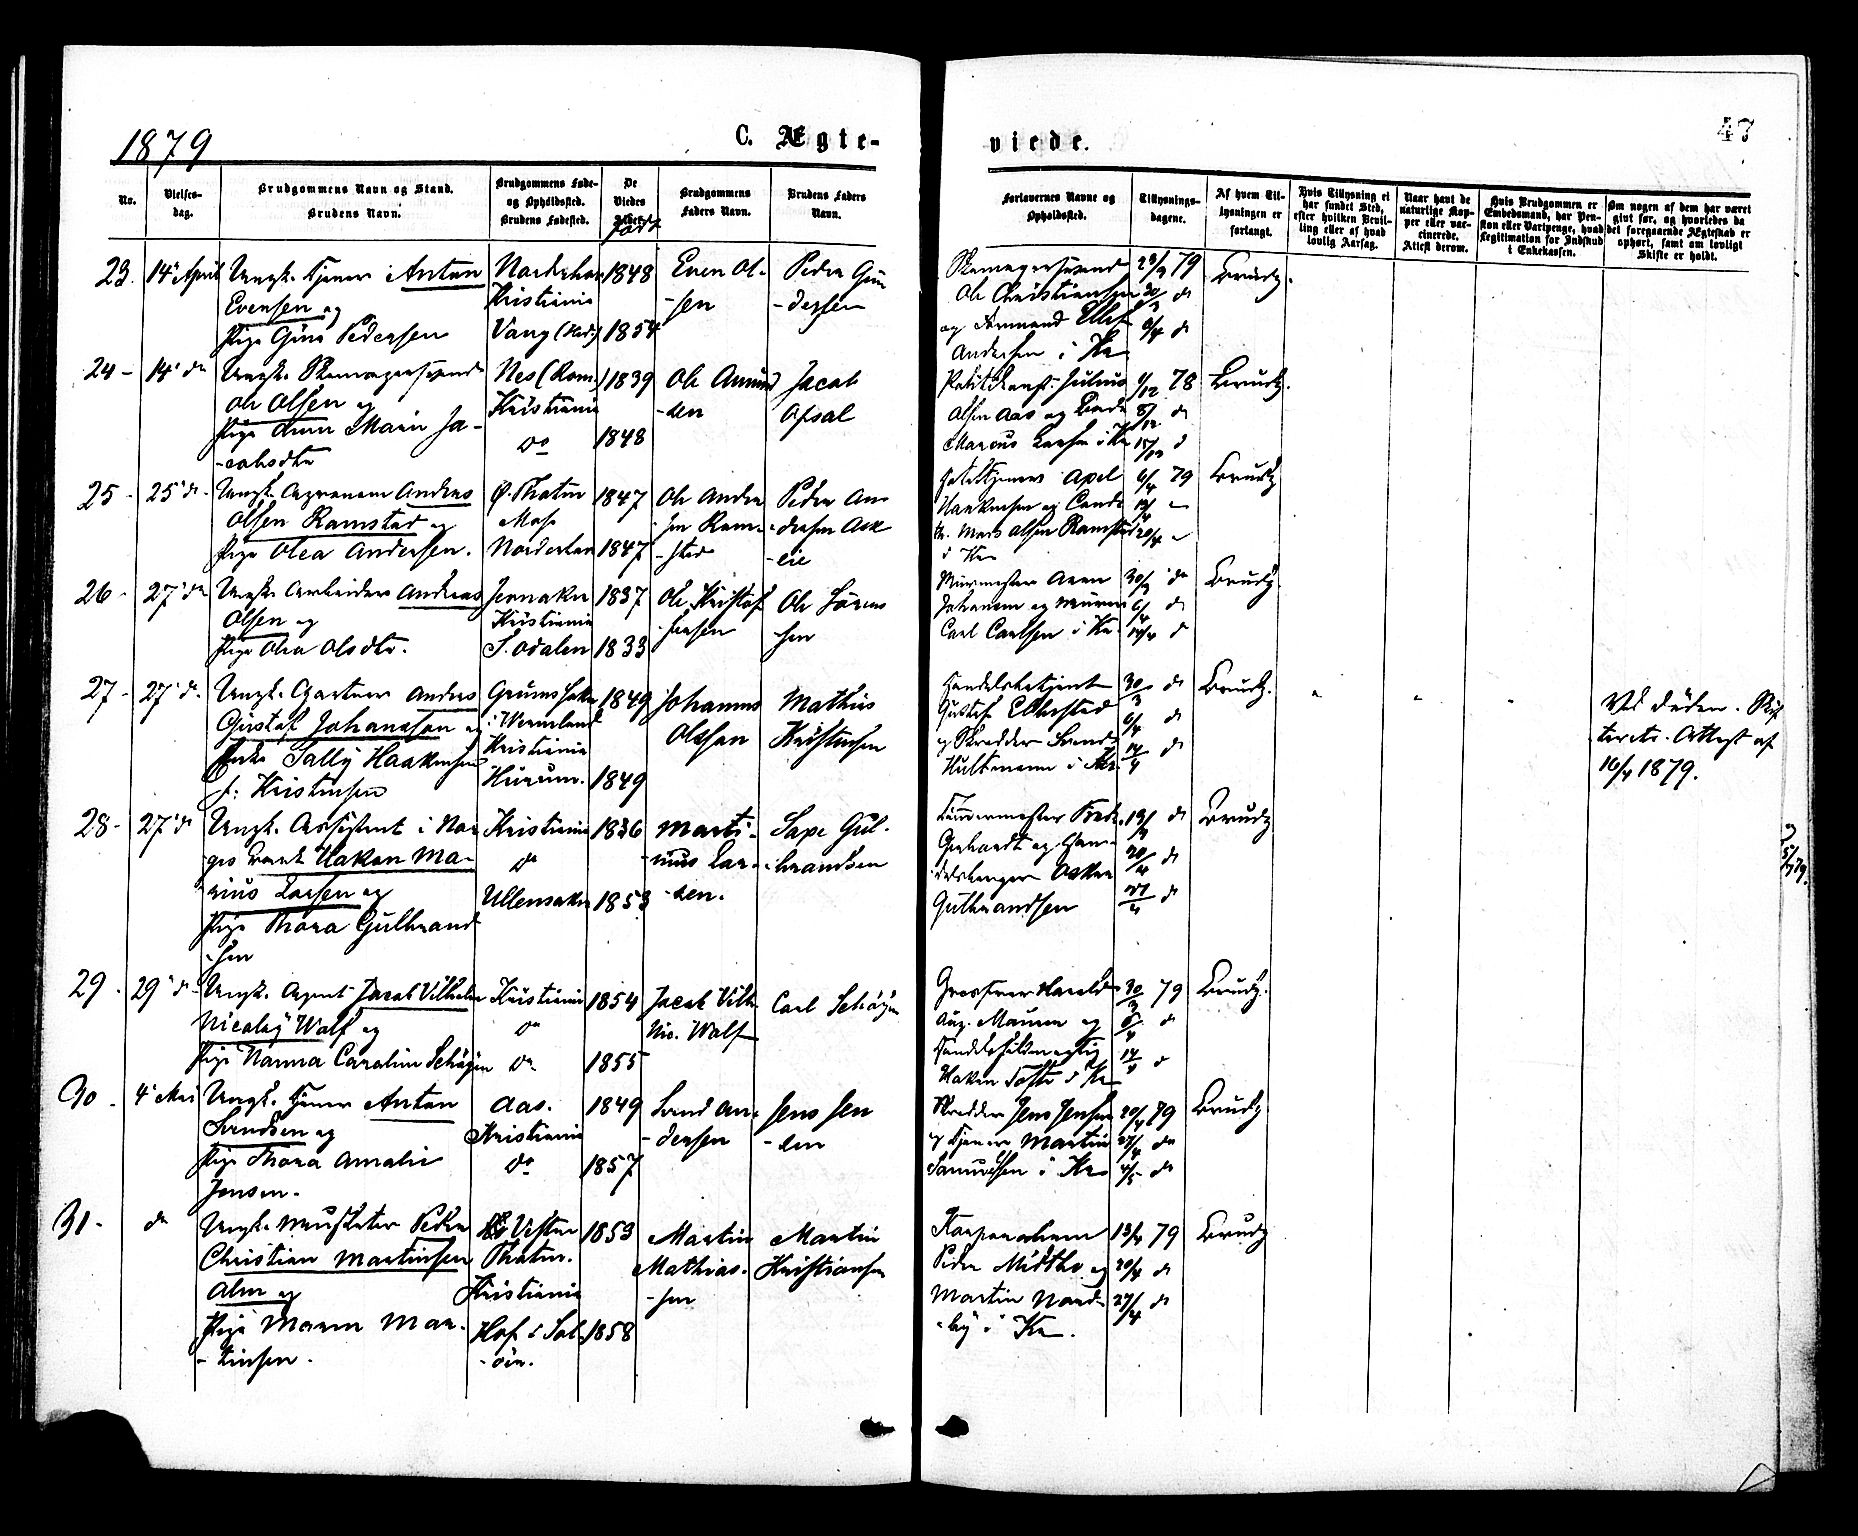 1879
C. Ægte-
viede.
47
No.
Vielses-
dag.
Brudgommens Navn og Stand.
Brudens Navn.
Brudgommens Føde-
og Opholdssted.
Brudens Fødested.
De
Viedes
Født
Brudgommens
Faders Navn.
Brudens Faders
Navn.
Forlovernes Navne og
Opholdssted.
Tillysnings-
dagene.
Af hvem Til-
lysningen er
forlangt.
Hvis Tillysning ei
har fundet Sted,
efter hvilken Bevil-
ling eller af hvad
lovlig Aarsag.
Naar havt de
naturlige Kop-
per eller vac-
cinerede.
Attest derom.
Hvis Brudgommen er
Embedsmand, har Pen-
sion eller Vartpenge, hvad
Legitimation for Indskud
i Enkekassen.
Om nogen af dem har været
gift før, og hvorledes da
det foregaaende Ægteskab er
ophørt, samt om lovligt
Skifte er holdt.
23. 14de April Ungk. Tjener Anton
Evensen og
Pige Gina Pedersen
Kristiania
Vang (Hed.)
1848
1854
Even Ol-
-sen
Peder Gun
-dersen
Ole Christiansen
Andersen i Kr
23/3 79
30/3 do
6/4 do
Brudg.
24- 14' do
Ole Olsen og
Pige Anne Marie Ja-
-cobsdtr
Nes (Rom.)
Kristiania
do
1839
1848
Ole Amund
-sen
Jacob
Olsen Aas og
Marcus Larsen i Kr
1/12 78
8/12 do
15/12 d
Brudg.
25- 25' do-
Andreas
Olsen Ramstad og
Pige Olea Andersen.
Ø. Thoten
Moss
Norderhov
1847
1847
Ole Andre
sen Ram-
-stad
Peder An-
-dersen Ask
-eie
Mads Olsen Ramstad
i Kr
6/4 79
20/4
Brudg
26- 27' do Ungk. Arbeider Andreas
Olsen og
Pige Olea Olsdtr.
Jevnaker
Kristiania
S. Odalen
1837
1833
Ole Kristof
-fersen
Ole Søren
-sen
Murmester
Johansen og Murer
Carl Carlsen i Kr.
30/3 do
6/4 do
14/4 d
Brudg.
27- 27' do. Ungk. Gartner Andreas
Gustaf Johansson og
Enke Sally Haakensen
f: Kristensen
i Wermland
Kristiania
Hurum.
1849
1849
Johannes
Olsson
Mathias
Kristensen
Handelsbetjent
Gustaf
og Skredder Svend
Hultmann i Kr.
30/3 do
6/4 do
14/4 do
Brudg.
Ved Døden. Skif
terets. Attest af
16/4 1879.
28- 27' do Ungk. Assistent i Nor
ges Bank Hakon Ma-
rius Larsen og
Pige Thora Gulbrand
-sen
Kristiania
do
Ullensaker
1836
1853
Marti-
-nus Lar-
-sen.
Gul-
-brandsen
Gerhardt og Han-
Gulbrandsen
13/4 do
20/4 do
27/4 do
Brudg
29. 29' do- Ungk. Agent Jacob Vilhelm
Nicolay Wolf og
Pige Nanna Caroline Schøyen
Kristiania
do
do
1854
1855
Jacob Vilh.
Nic. Wolf
Carl Schøyen
Grosserer Harald
Aug. og
Handelsfuldmægtig
Haken Tofte i Kr
30/3 79
6/4 do
14/4 do
Brudg.
30. 4' Mai Ungk. Tjener Anton
Svendsen og
Pige Thora Amalie
Jensen.
Aas.
Kristiania
do
1849
1857
Svend An-
-dersen
Jens Jen
-sen
Skredder Jens Jensen
og Tjener Martin
Samuelsen i Kr
20/4 79
27/4 do
4/5 do
Brudg
31- do Ungk. Musketer Peder
Christian Martinsen
Alm og
Pige Maren Mar-
-tinsen.
Vestre
Thoten.
Kristiania
Hof i Sol-
-øer.
1853
1858
Martin
Mathias-
-sen
Martin
Kristiansen
Peder Midtbo og
Martin Nord-
-by i Kr.
13/4 79
20/4 do
27/4 do
Brudg